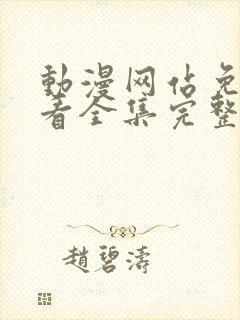 動漫网佔免
看全集完整
趙碧濤